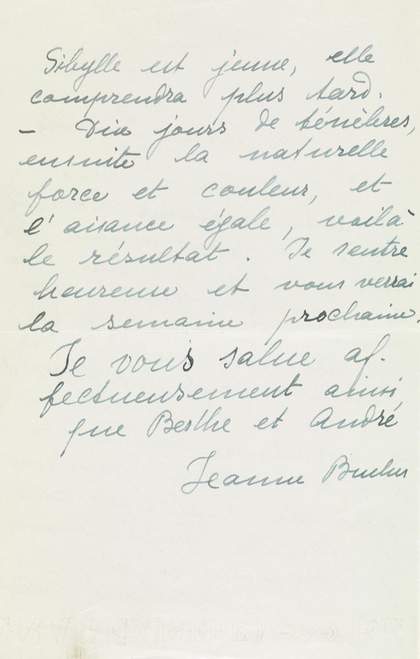 Sibylle est jeune, elle
comprendra plus tard.
— Dix jours de ténèbres,
ensuite la naturelle
force et couleur, et
l'aisance égale, voilà
le résultat. Je rentre
heureuse et vous verrai
la semaine prochaine.
Je vous salue af-
fectueusement ainsi
que Berthe et André
Jeanne Bucher